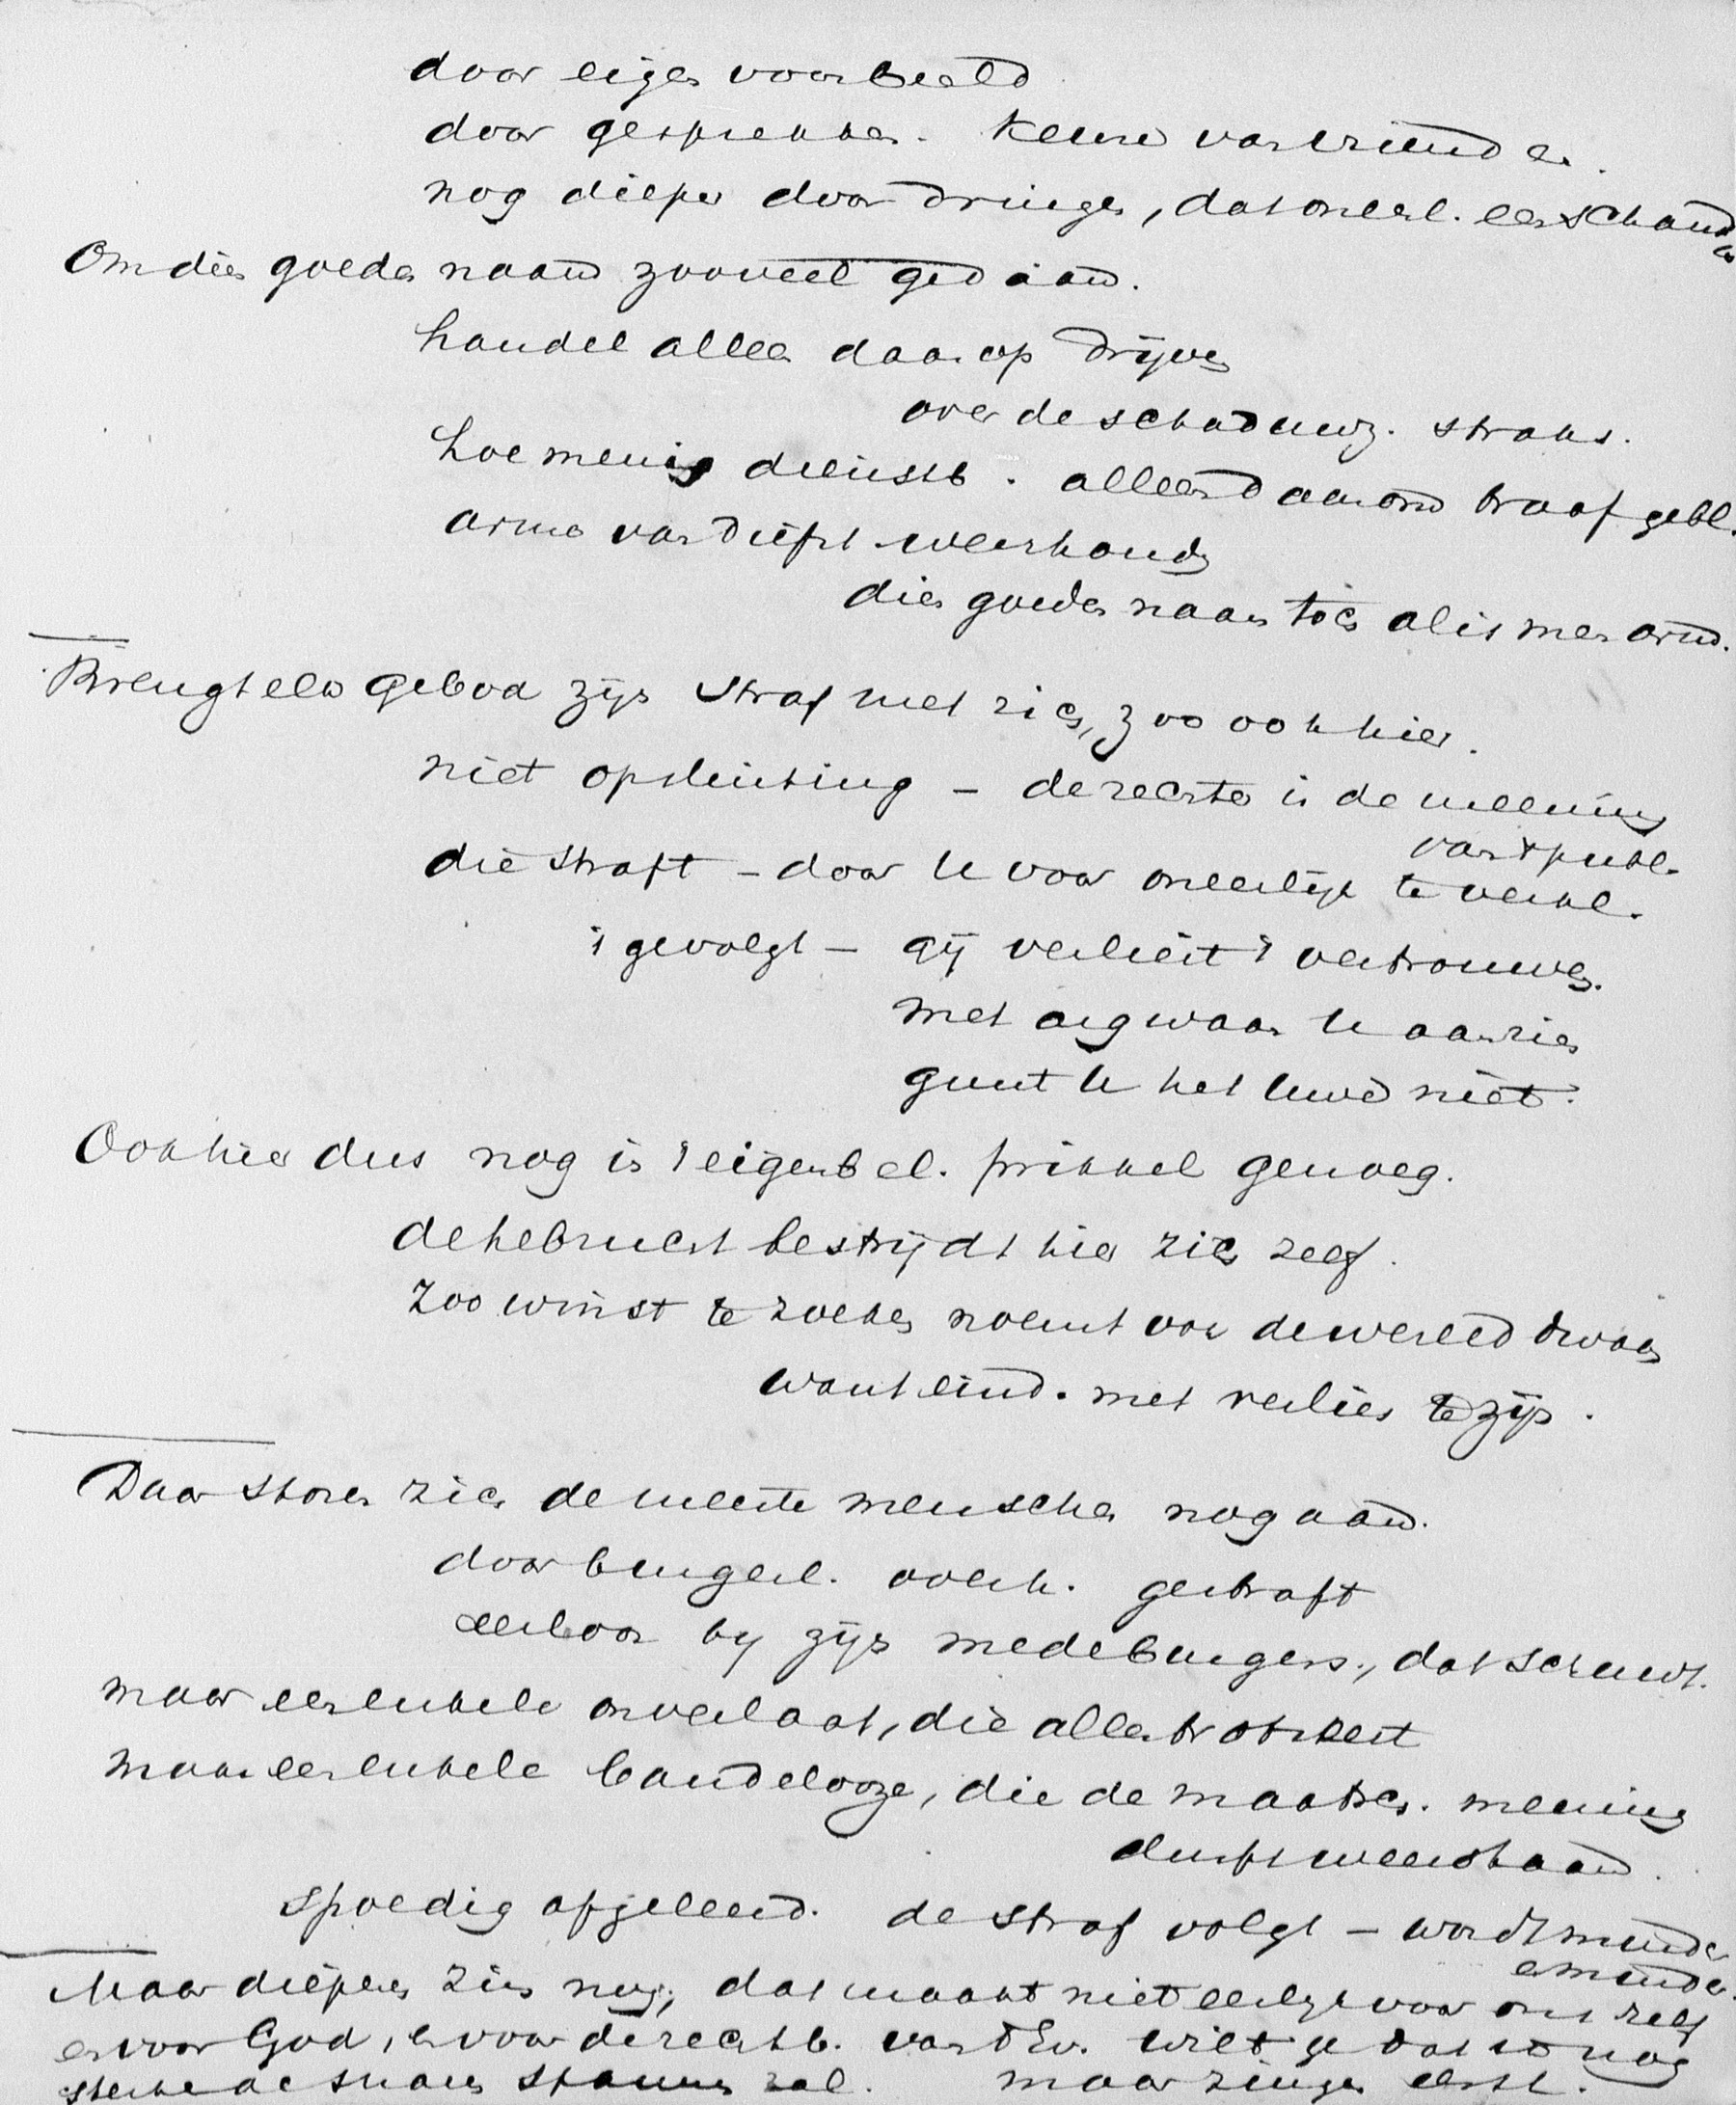 door eigen voorbeeld
door gesprekken. keuze van vrienden.
nog dieper doordringen, dat oneerl. een schande
Om dien goeden naam zooveel gedaan.
handel alleen daarop drijven
over de schaduwz. straks.
hoe menig dienstb. alleen daarom braaf gebl.
arme van diefst weerhouden
dien goeden naam toch al is men arm.
Brengt elk gebod zijn straf met zich, zoo ook hier.
niet opsluiting – de rechter is de meening
van 't publ.
die straft – door U voor oneerlijk te verkl.
't gevolgt – gij verliest 't vertrouwen.
met argwaan U aanzien
gunt U het Uwe niet.
Ook hier dus nog is 't eigenbel. prikkel genoeg.
de hebzucht bestrijdt hier zich zelf.
Zoo winst te zoeken noemt ook de wereld dwaas
want eind. met verlies te zijn.
Daar storen zich de meeste menschen nog aan.
door burgerl. overh. gestraft
eerloos bij zijn medeburgers, dat schuwt.
maar een enkele onverlaat, die alles trotseert
maar een enkele bandelooze, die de maatsch. meening
durft weerstaan.
spoedig afgeleerd. de straf volgt – wordt minder
en minder.
Maar dieper zin nog, dat maakt niet eerlijk voor ons zelf
en voor God, en voor de rechtb. van 't Ev. wilt ge dat ik nog
sterker de snaren spannen zal. maar zingen eerst.